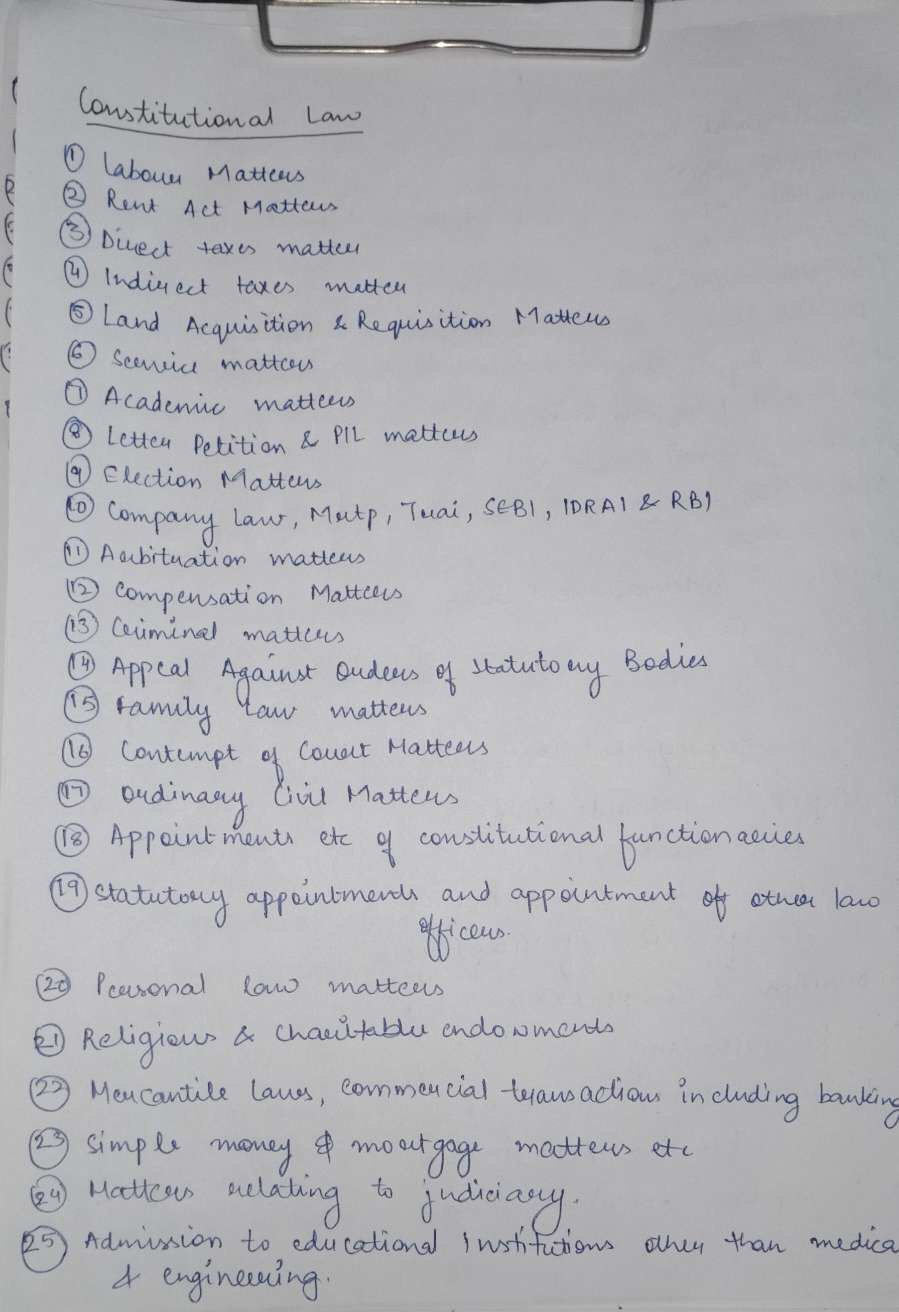 Constitutional Law
① Labour Matters
② Rent Act Matters
③ Direct taxes matter
④ Indirect taxes matter
⑤ Land Acquisition & Requisition Matters
⑥ Service matters
⑦ Academic matters
⑧ Letter Petition & PIL matters
⑨ Election Matters
⑩ Company Law, Mrtp, Trai, SEBI, IDRAI & RBI
⑪ Aarbitration matters
⑫ Compensation Matters
⑬ Criminal matters
⑭ Appeal Against Orders of Statutory Bodies
⑮ Family Law matters
⑯ Contempt of Court Matters
⑰ Ordinary Civil Matters
⑱ Appointments etc of constitutional functionaries
⑲ Statutory appointments and appointment of other law
officers.
⑳ Personal law matters
㉑ Religious & Charitable endowments
㉒ Mercantile Laws, Commercial transactions including banking
㉓ Simple money & mortgage matters etc
㉔ Matters relating to judiciary.
㉕ Admission to educational institutions other than medica
& engineering.